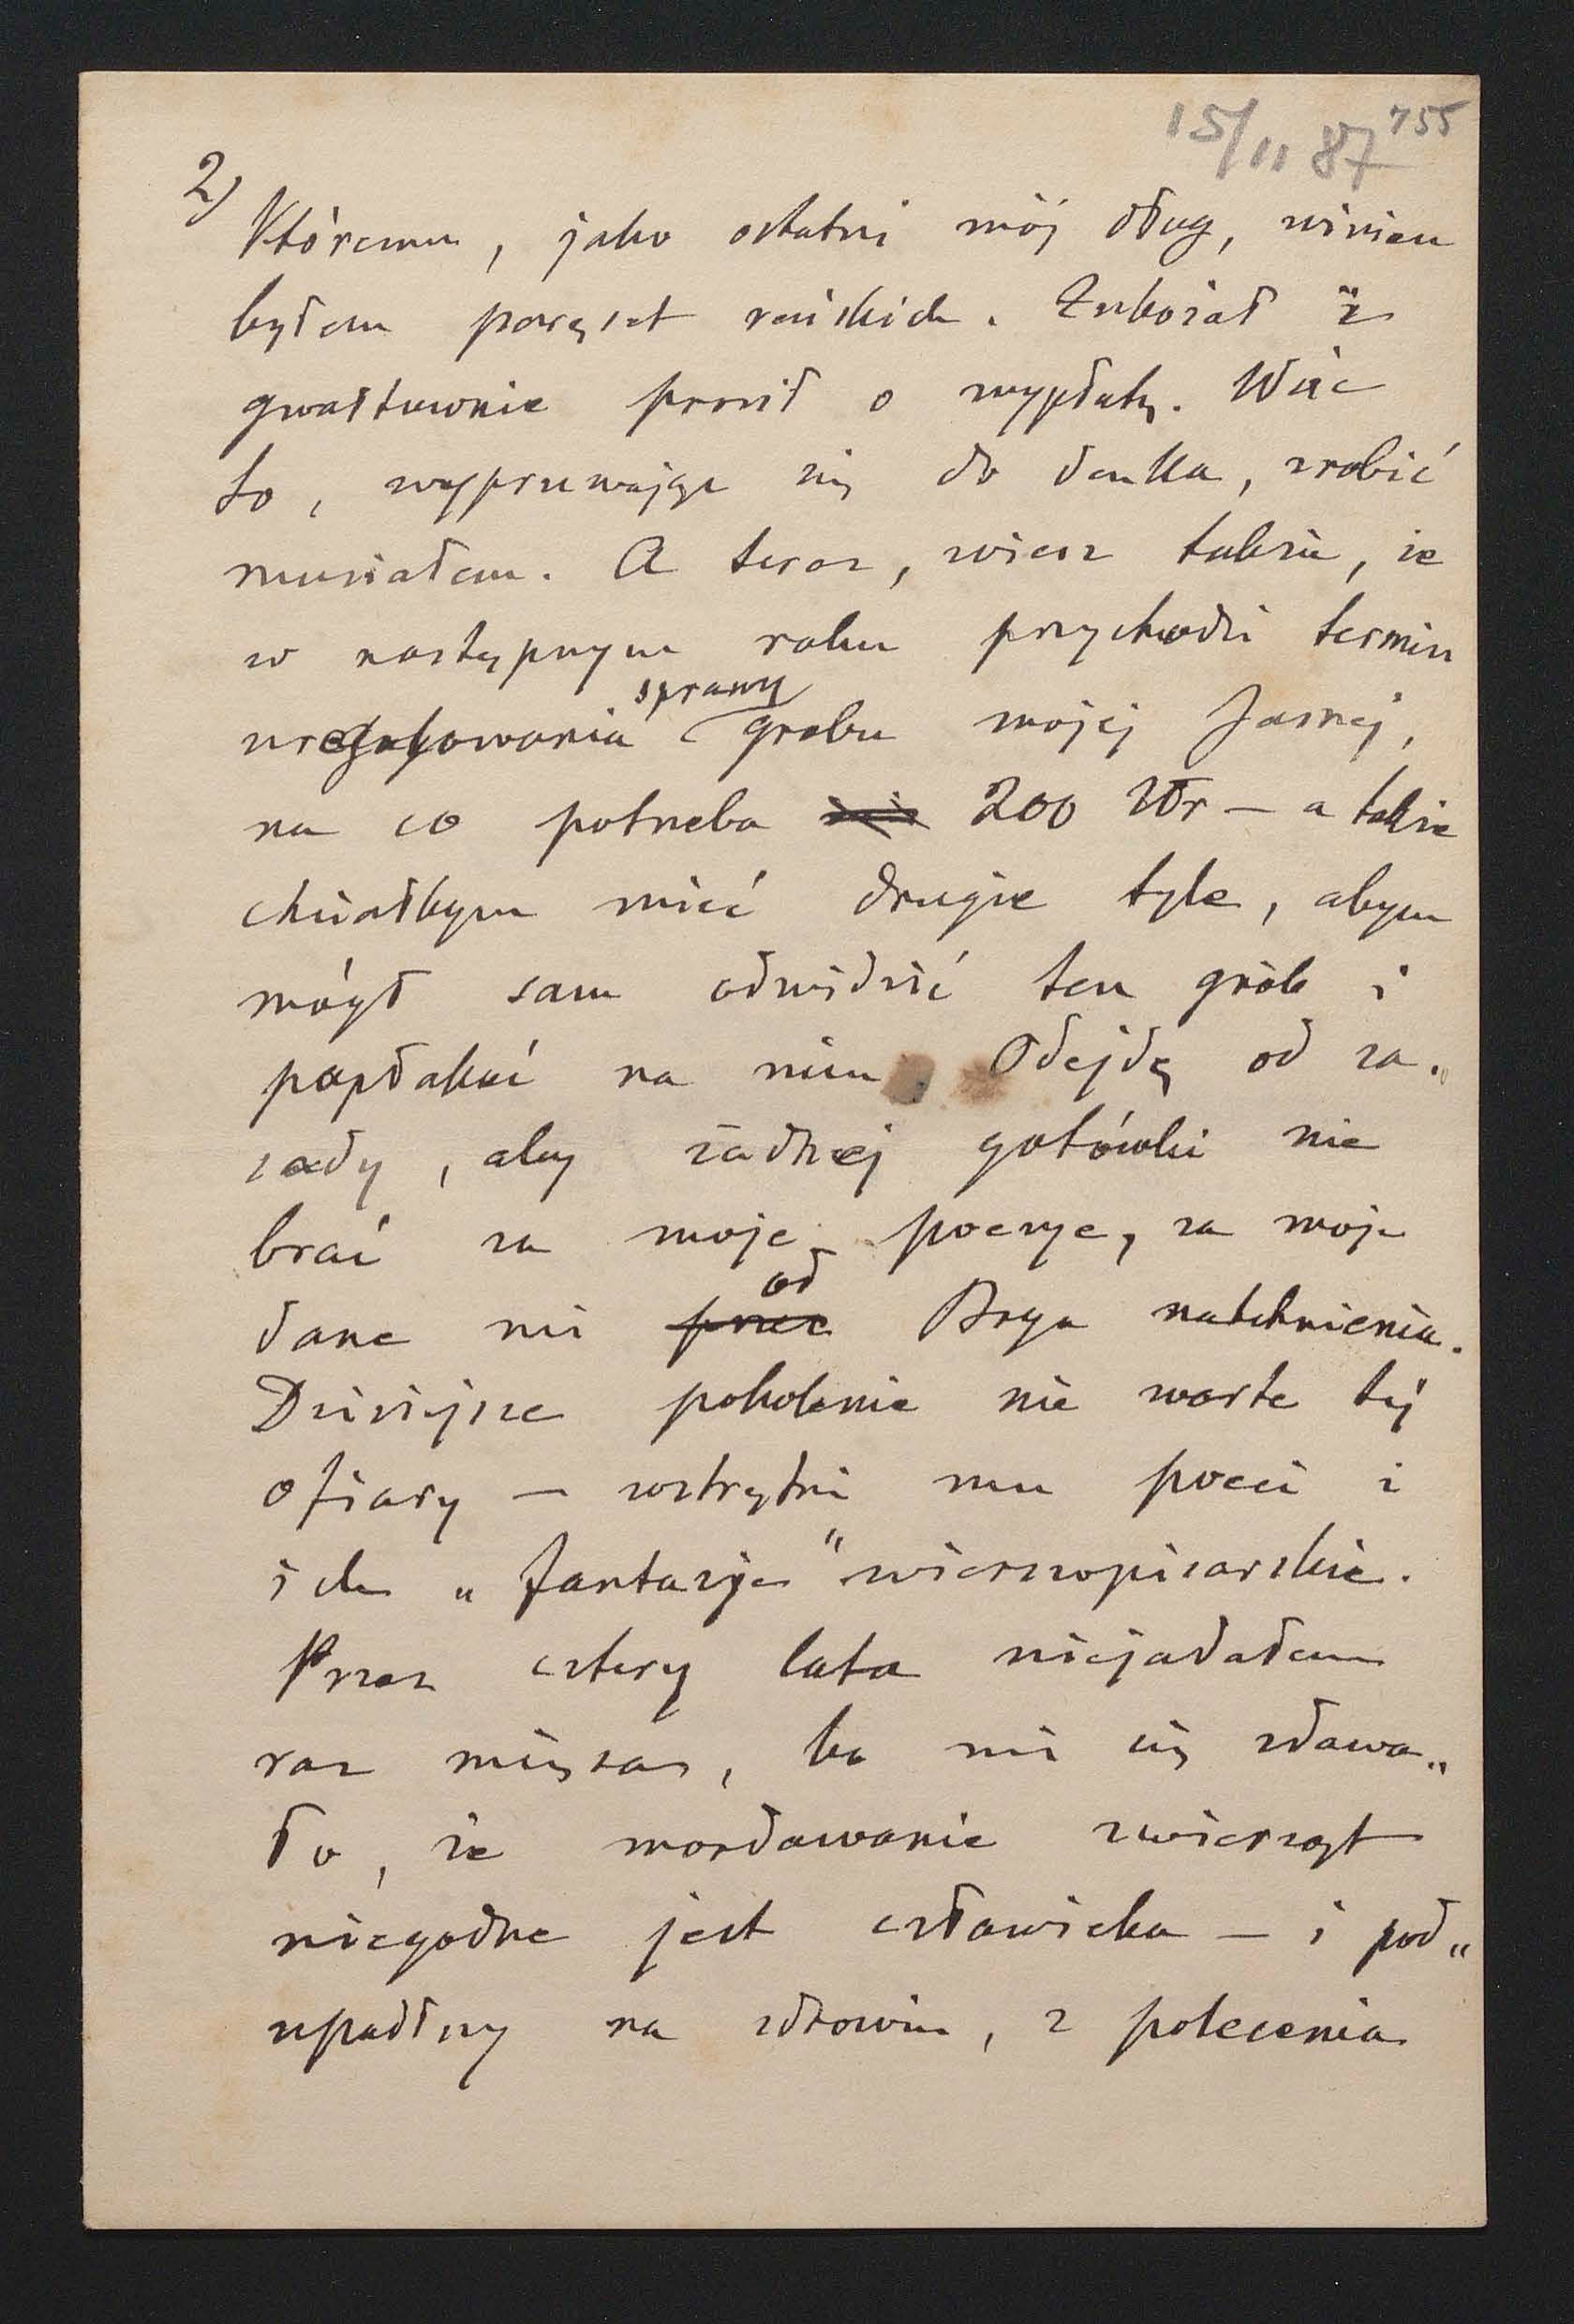 15/11 87 755
2)
Któremu, jako ostatni mój dług, winien
byłem paręset reńskich. Zubożał i
gwałtownie prosił o wypłatę. Więc
to, wypruwając się do denka, zrobić
musiałem. A teraz, wiesz także, że
w następnym roku przychodzi termin
sprawy
uregulowania grobu mojej Jasnej,
na co potrzeba 200 złr — a także
chciałbym mieć drugie tyle, abym
mógł sam odwiedzić ten grób i
popłakać na nim. Odejdę od za„
sady, aby żadnej gotówki nie
brać za moje poezye, za moje
od
dane mi przez Boga natchnienia.
Dzisiejsze pokolenie nie warte tej
ofiary — wstrętni mu poeci i
ich „fantazje" wierszopisarskie.
Przez cztery lata niejadałem
raz mięsa, bo mi się zdawa„
ło, że mordowanie zwierząt
niegodne jest człowieka — i pod„
upadłszy na zdrowiu, z polecenia